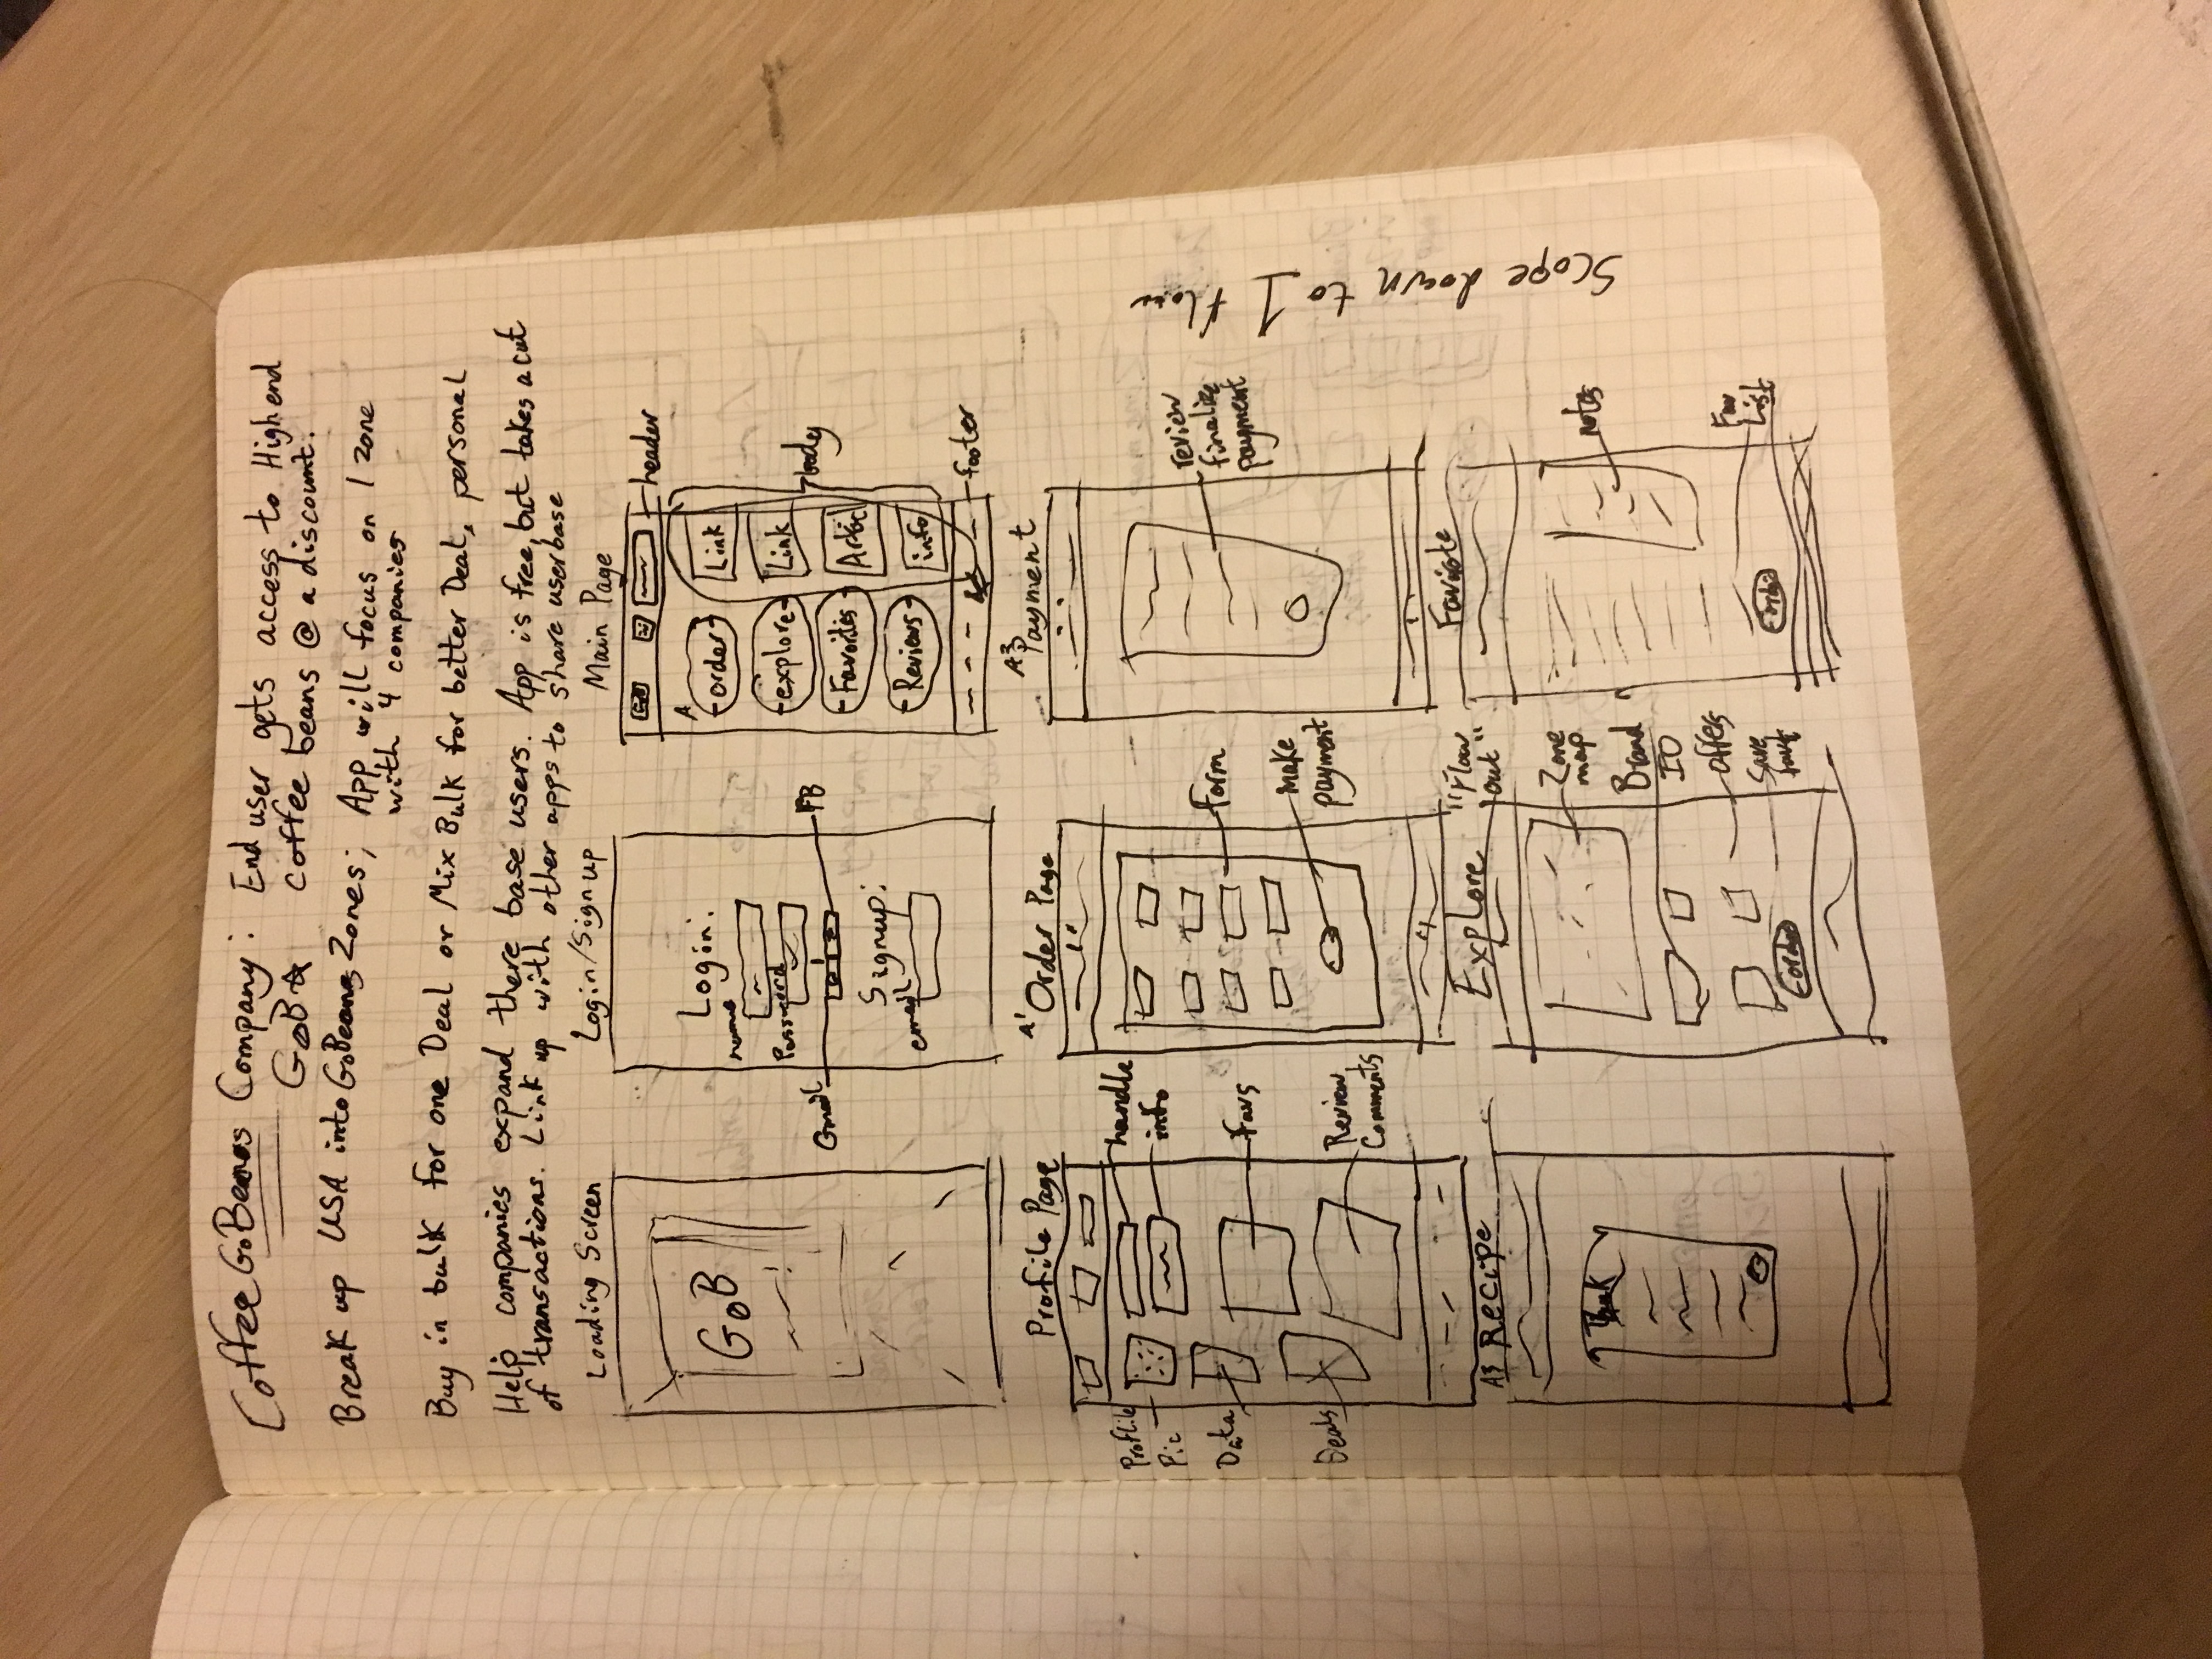 Coffee GoBeans Company: End user gets access to High end
GoB coffee beans @ a discount.
Break up USA into GoBeans Zones; App will focus on 1 zone
with 4 companies
Buy in bulk for one Deal or Mix Bulk for better Deal, personal
Help companies expand there base users. App is free, but takes a cut
of transactions. Link up with other apps to share userbase
Loading Screen
GoB
Login/Signup
Login:
name
Password
Gmail
FB
Signup:
email
Main Page
header
A
order
Link
explore
Link
body
Favorites
Reviews
info
footer
Profile Page
Proflie
Pic
handle
info
Data
Favs
Deals
Review
Comments
A1 Order Page
form
make
payment
A3 Payment
review
finalize
payment
A3 Recipe
Thank
Explore
"Flow
out"
Zone
map
Brand
IO
offers
Save
order
Faviote
notes
Fav
List
Scope down to 1 flow